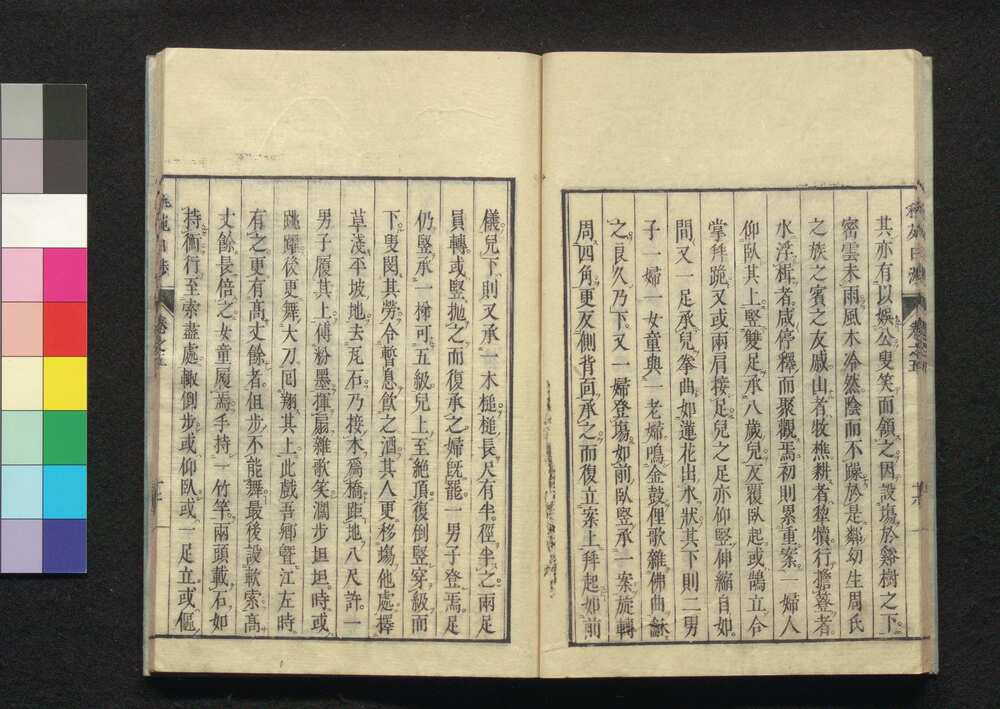 其亦有以娯公叟笑而頷之因設塲於谿樹之下
密雲未雨風木冷然陰而不躁於是鄰幼生周氏
之族之賓之友戚山者牧樵耕者犂犢行擔簦者
水浮楫者咸停釋而聚觀焉初則累重案一婦人
仰臥其上豎雙足承八歲兒反覆臥起或鵠立合
掌拜跪又或兩肩接足兒之足亦仰豎伸縮自如
間又一足承兒拳曲如蓮花出水狀其下則二男
子一婦一女童與一老婦鳴金鼓俚歌雜佛曲龢
之良久乃下又一婦登塲如前臥豎承一案旋轉
周四角更反側背面承之而復立案上拜起如前
儀兒下則又承一木槌槌長尺有半徑半之兩足
員轉或豎拋之而復承之婦旣罷一男子登焉足
仍豎承一梯可五級兒上至絶頂復倒豎穿級而
下叟閔其勞令暫息飲之酒其人更移塲他處擇
草淺平坡地去瓦石乃接木爲橋距地八尺許一
男子履其上傅粉墨揮扇雜歌笑濶步坦坦時或
跳躍後更舞大刀回翔其上此戲吾鄉曁江左時
有之更有高丈餘者但步不能舞最後設軟索高
丈餘長倍之女童履焉手持一竹竿兩頭載石如
持衡行至索盡處輒倒步或仰臥或一足立或傴